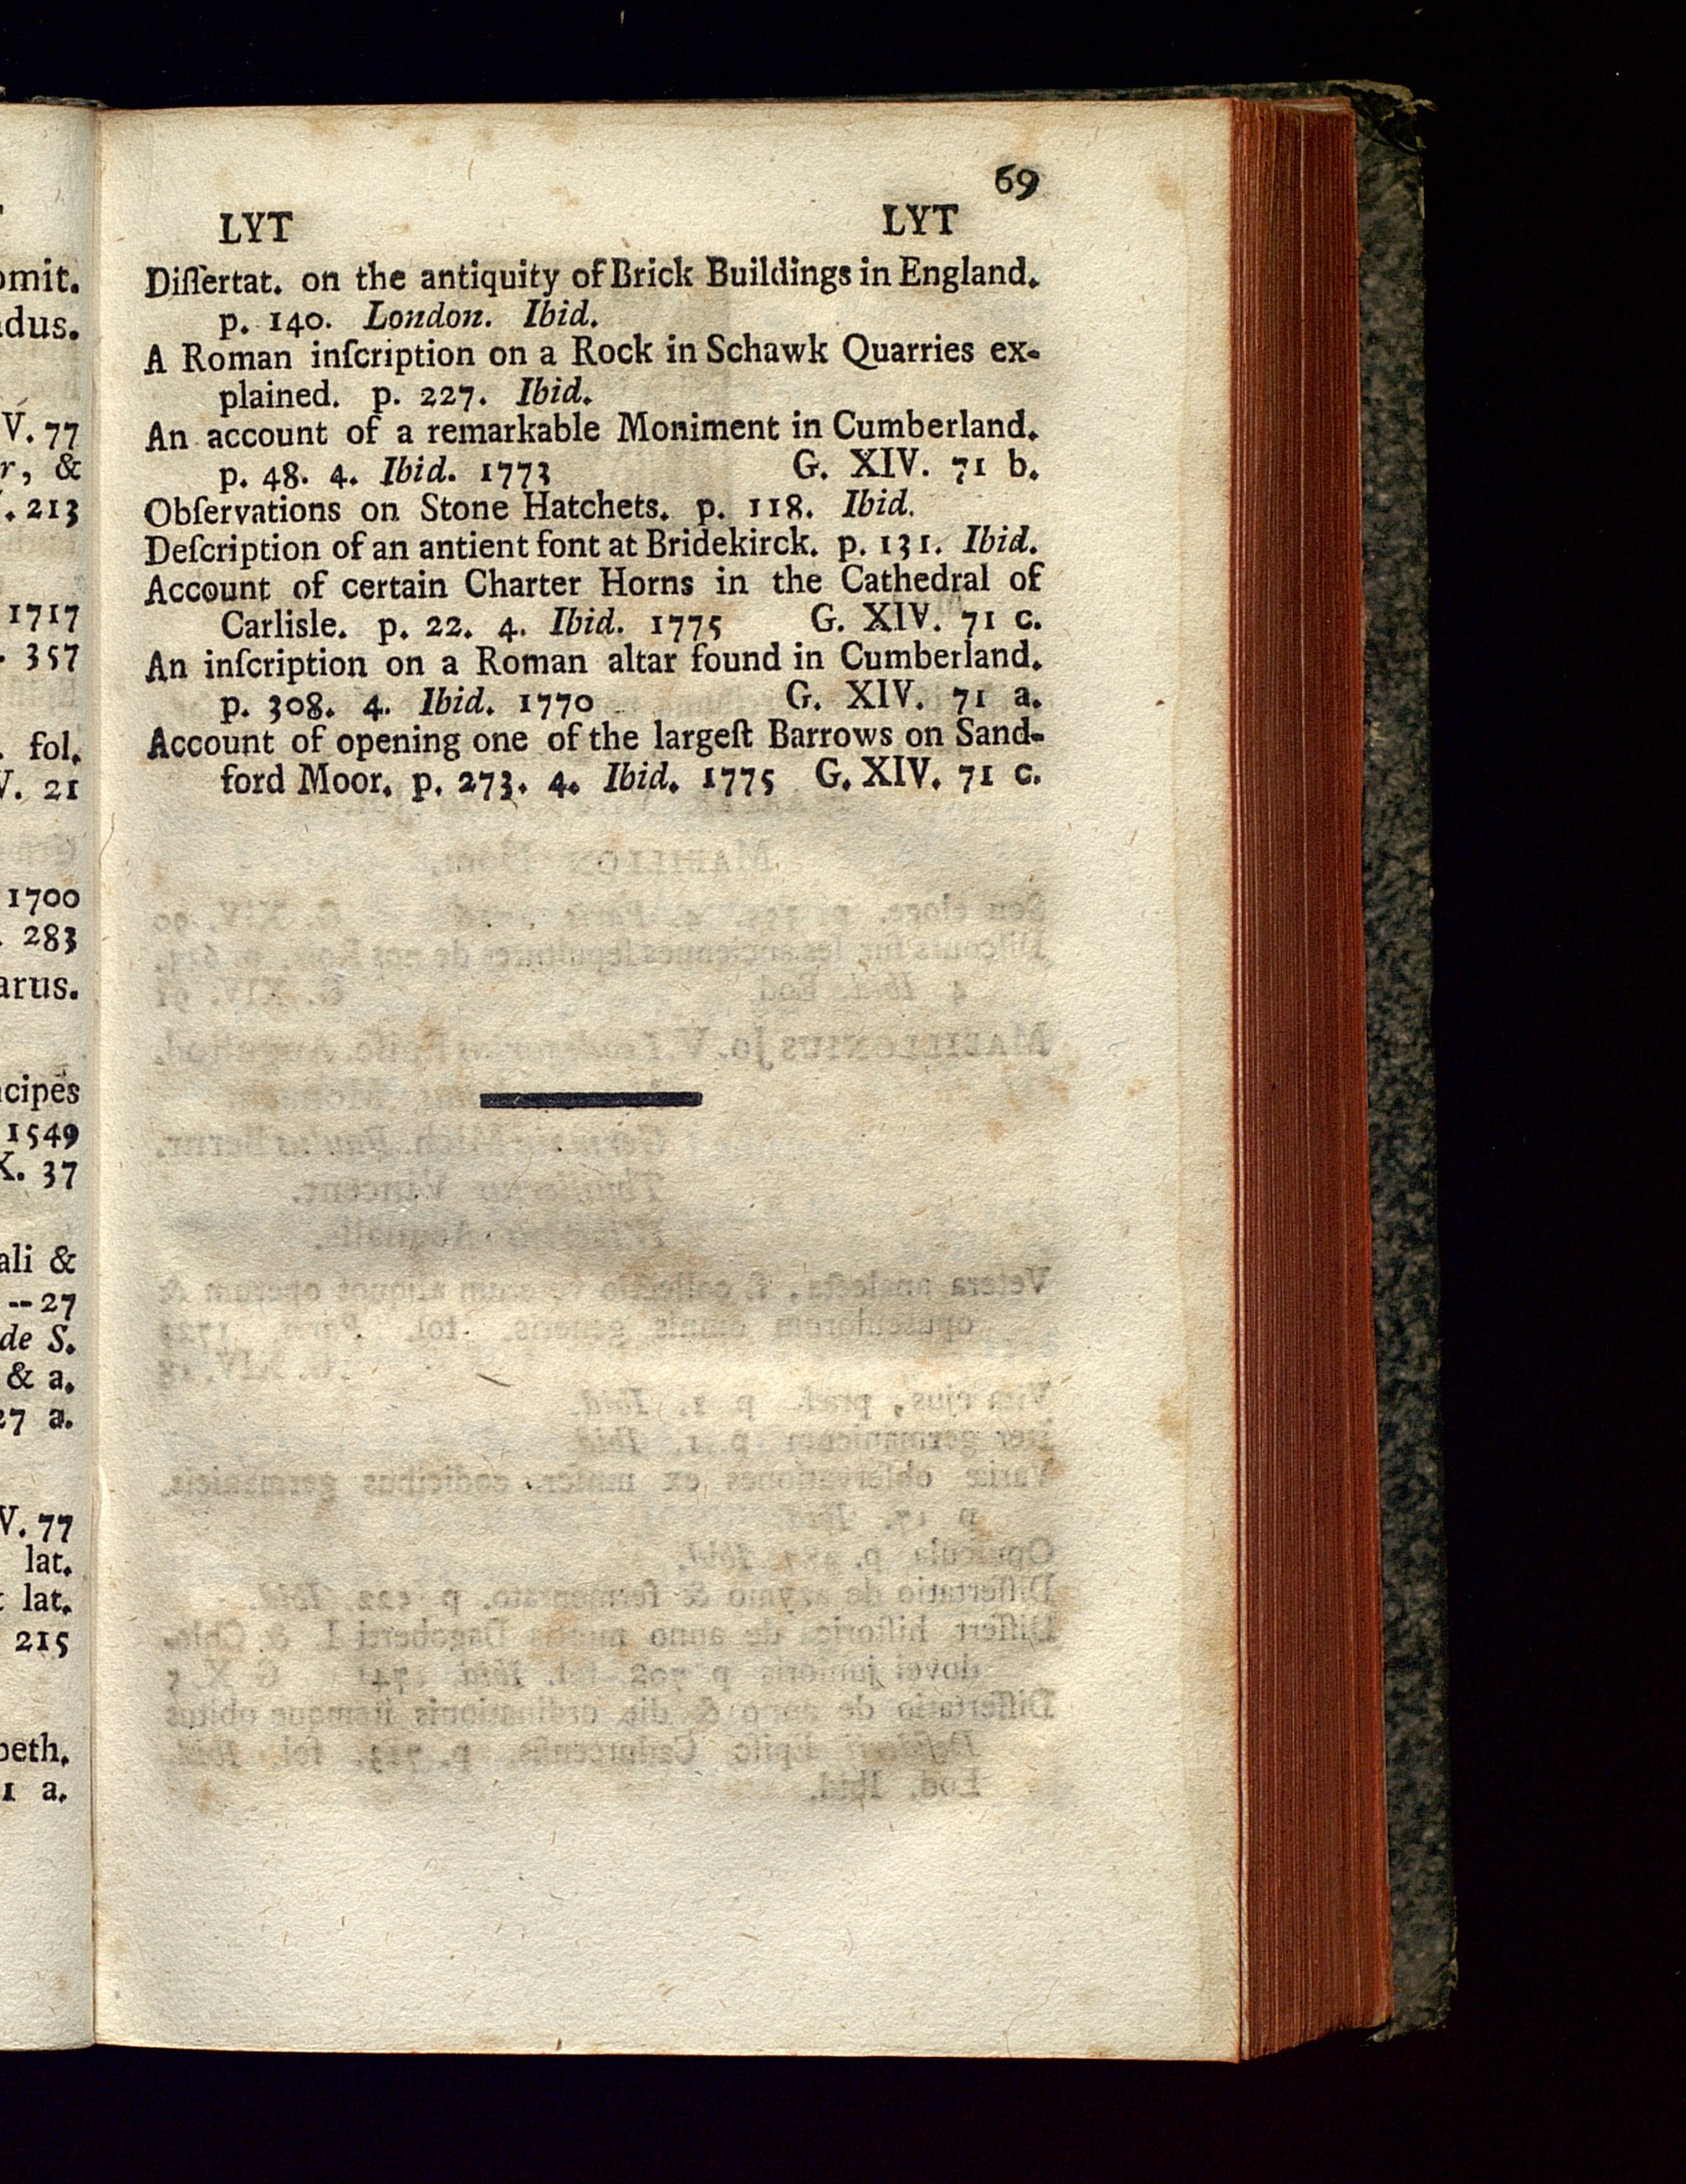 69
LYT LYT
Diſſertat. on the antiquity of Brick Buildings in England.
p. 140. London. Ibid.
A Roman inſcription on a Rock in Schawk Quarries ex-
plained. p. 227. Ibid.
An account of a remarkable Moniment in Cumberland.
p. 48. 4. Ibid. 1773 G. XIV. 71 b.
Obſervations on Stone Hatchets. p. 118. Ibid.
Deſcription of an antient font at Bridekirck. p. 131. Ibid.
Account of certain Charter Horns in the Cathedral of
Carlisle. p. 22. 4. Ibid. 1775 G. XIV. 71 c.
An inſcription on a Roman altar found in Cumberland.
p. 308. 4. Ibid. 1770 G. XIV. 71 a.
Account of opening one of the largeſt Barrows on Sand-
ford Moor. p. 273. 4. Ibid. 1775 G. XIV. 71 c.
V. 77
r, &
. 213
1717
. 357
. fol.
V. 21
1700
. 283
1549
X. 37
&
--27
de S.
& a.
27 a.
V. 77
lat.
lat.
215
1 a.